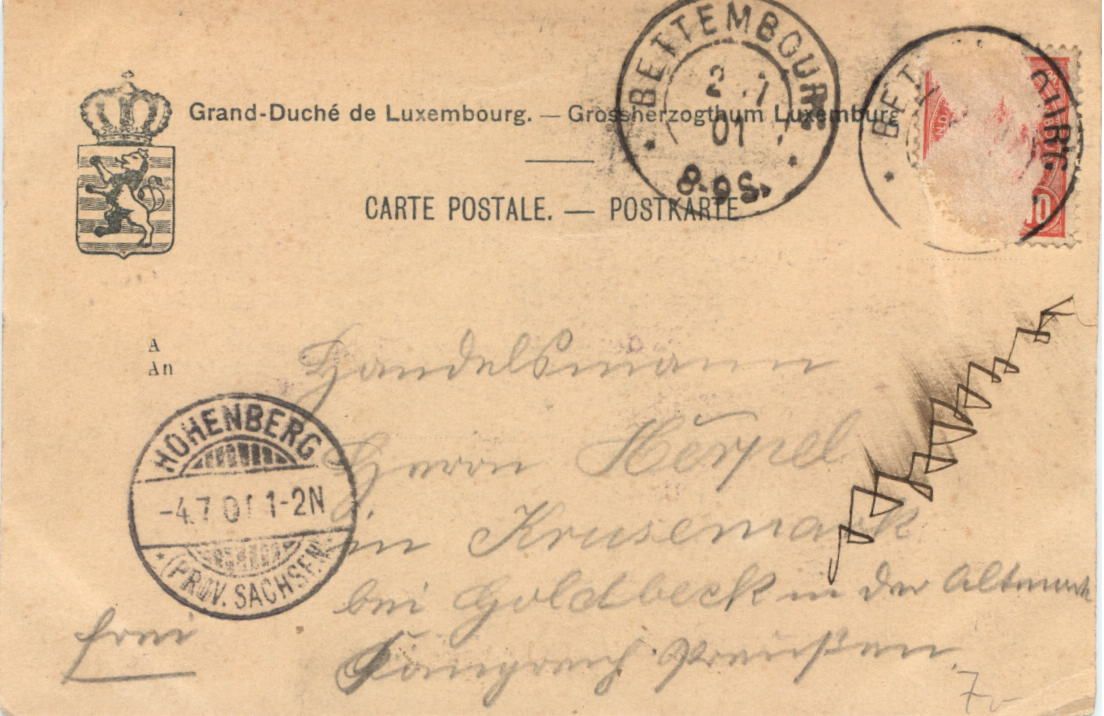 Grand-Duché de Luxembourg. — Grossherzogthum Luxemburg
CARTE POSTALE. — POSTKARTE
BETTEMBOURG
01
8-9S
10
A
An
Handelsmann
Herrn Herpel
in Krusemark
bei Goldbeck in der Altmark
Königreich Preußen.
frei
HOHENBERG
-4.7.01 1-2N
(PROV. SACHSEN)